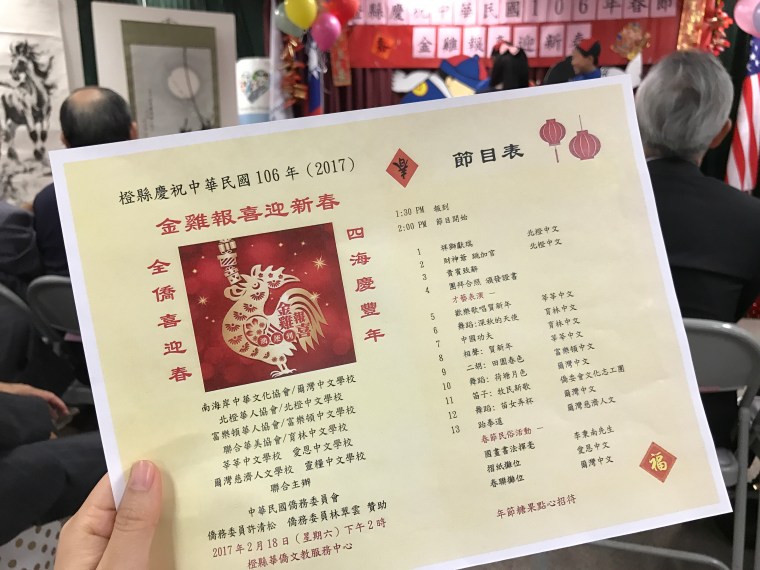 橙縣慶祝中華民國106年春節
金雞報喜迎新春
橙縣慶祝中華民國 106 年（2017）
金雞報喜迎新春
全僑喜迎春
四海慶豐年
金雞報喜
南海岸中華文化協會/爾灣中文學校
北橙華人協會/北橙中文學校
富樂頓華人協會/富樂頓中文學校
聯合華美協會/育林中文學校
華華中文學校 愛思中文學校
爾灣慈濟人文學校 靈糧中文學校
聯合主辦
中華民國僑務委員會
僑務委員許清松 僑務委員林翠雲 贊助
2017年2月18日（星期六）下午2時
橙縣華僑文教服務中心
春
節目表
1:30 PM 報到
2:00 PM 節目開始
1 祥獅獻瑞 北橙中文
2 財神爺 跳加官 北橙中文
3 貴賓致辭
4 團拜合照 頒發證書
才藝表演 —
5 歡樂歌唱賀新年 華華中文
6 舞蹈:深秋的天使 育林中文
7 中國功夫 育林中文
8 相聲: 賀新年 華華中文
9 二胡: 田園春色 富樂頓中文
10 舞蹈: 荷塘月色 僑委會文化志工團
11 笛子: 牧民新歌 爾灣中文
12 舞蹈: 苗女弄杯 爾灣慈濟人文
13 跆拳道
春節民俗活動 —
國畫書法揮毫 李秉南先生
摺紙攤位 愛思中文
春聯攤位 爾灣中文
福
年節糖果點心招待